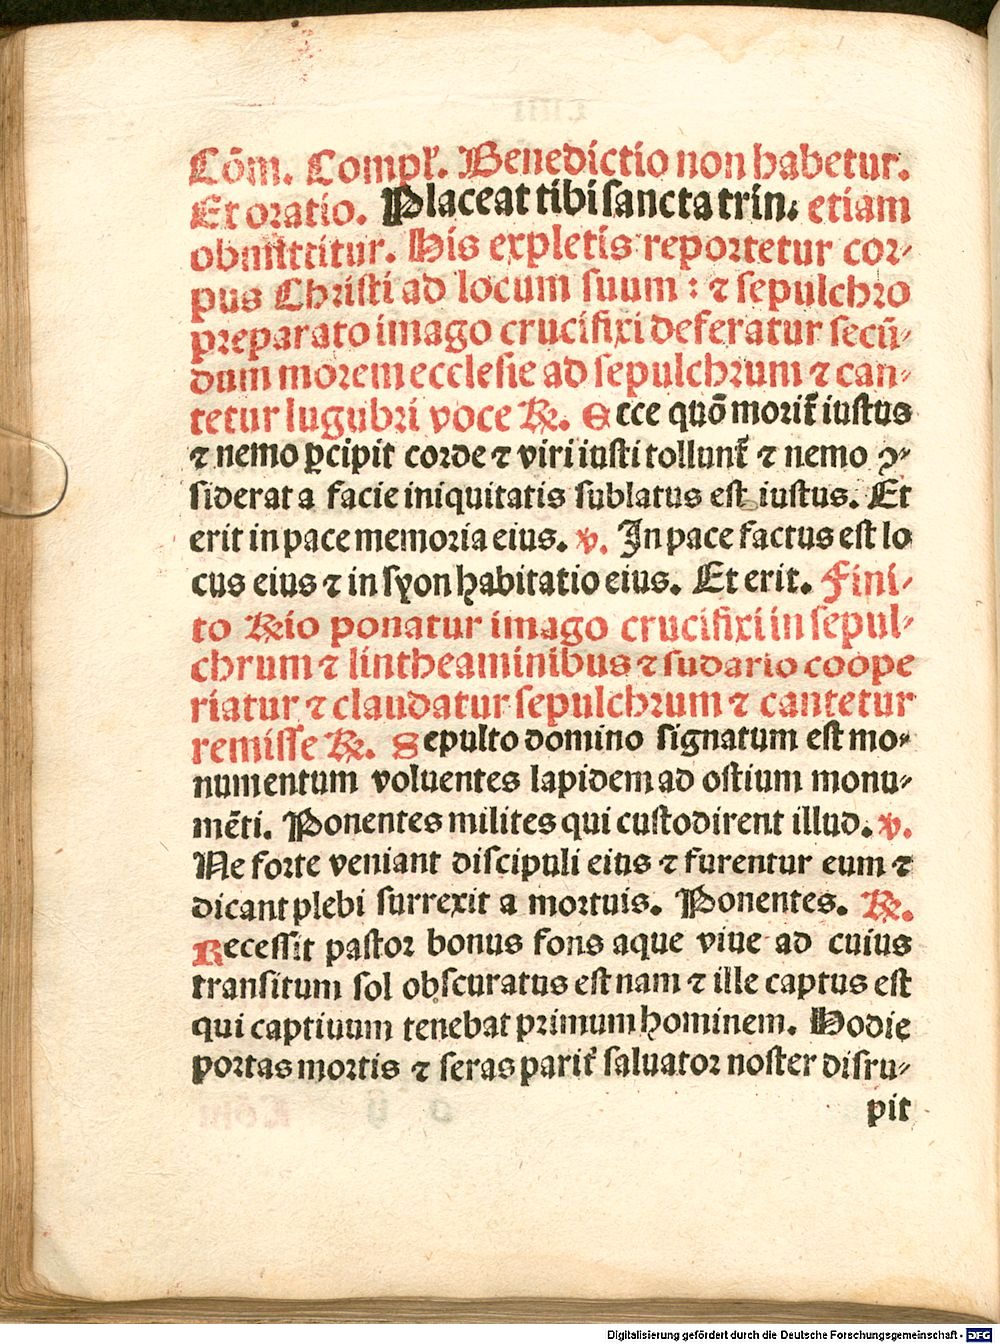 Cōm. Compl'. Benedictio non habetur.
Et oratio. Placeat tibi sancta trin. etiam
obmittitur. His expletis reportetur cor⸗
pus Christi ad locum suum : ⁊ sepulchro
preparato imago crucifixi deferatur secū⸗
dum morem ecclesie ad sepulchrum ⁊ can⸗
tetur lugubri voce ℟. Ecce quō morit̄ iustus
⁊ nemo ꝑcipit corde ⁊ viri iusti tollunt̄ ⁊ nemo ꝯ⸗
siderat a facie iniquitatis sublatus est iustus. Et
erit in pace memoria eius. v. In pace factus est lo
cus eius ⁊ in syon habitatio eius. Et erit. Fini⸗
to ℟io ponatur imago crucifixi in sepul⸗
chrum ⁊ lintheaminibus ⁊ sudario coope
riatur ⁊ claudatur sepulchrum ⁊ cantetur
remisse ℟. Sepulto domino signatum est mo⸗
numentum voluentes lapidem ad ostium monu⸗
mēti. Ponentes milites qui custodirent illud. v.
Ne forte veniant discipuli eius ⁊ furentur eum ⁊
dicant plebi surrexit a mortuis. Ponentes. ℟.
Recessit pastor bonus fons aque viue ad cuius
transitum sol obscuratus est nam ⁊ ille captus est
qui captiuum tenebat primum hominem. Hodie
portas mortis ⁊ seras parit̄ saluator noster disru⸗
pit
Digitalisierung gefördert durch die Deutsche Forschungsgemeinschaft - DFG